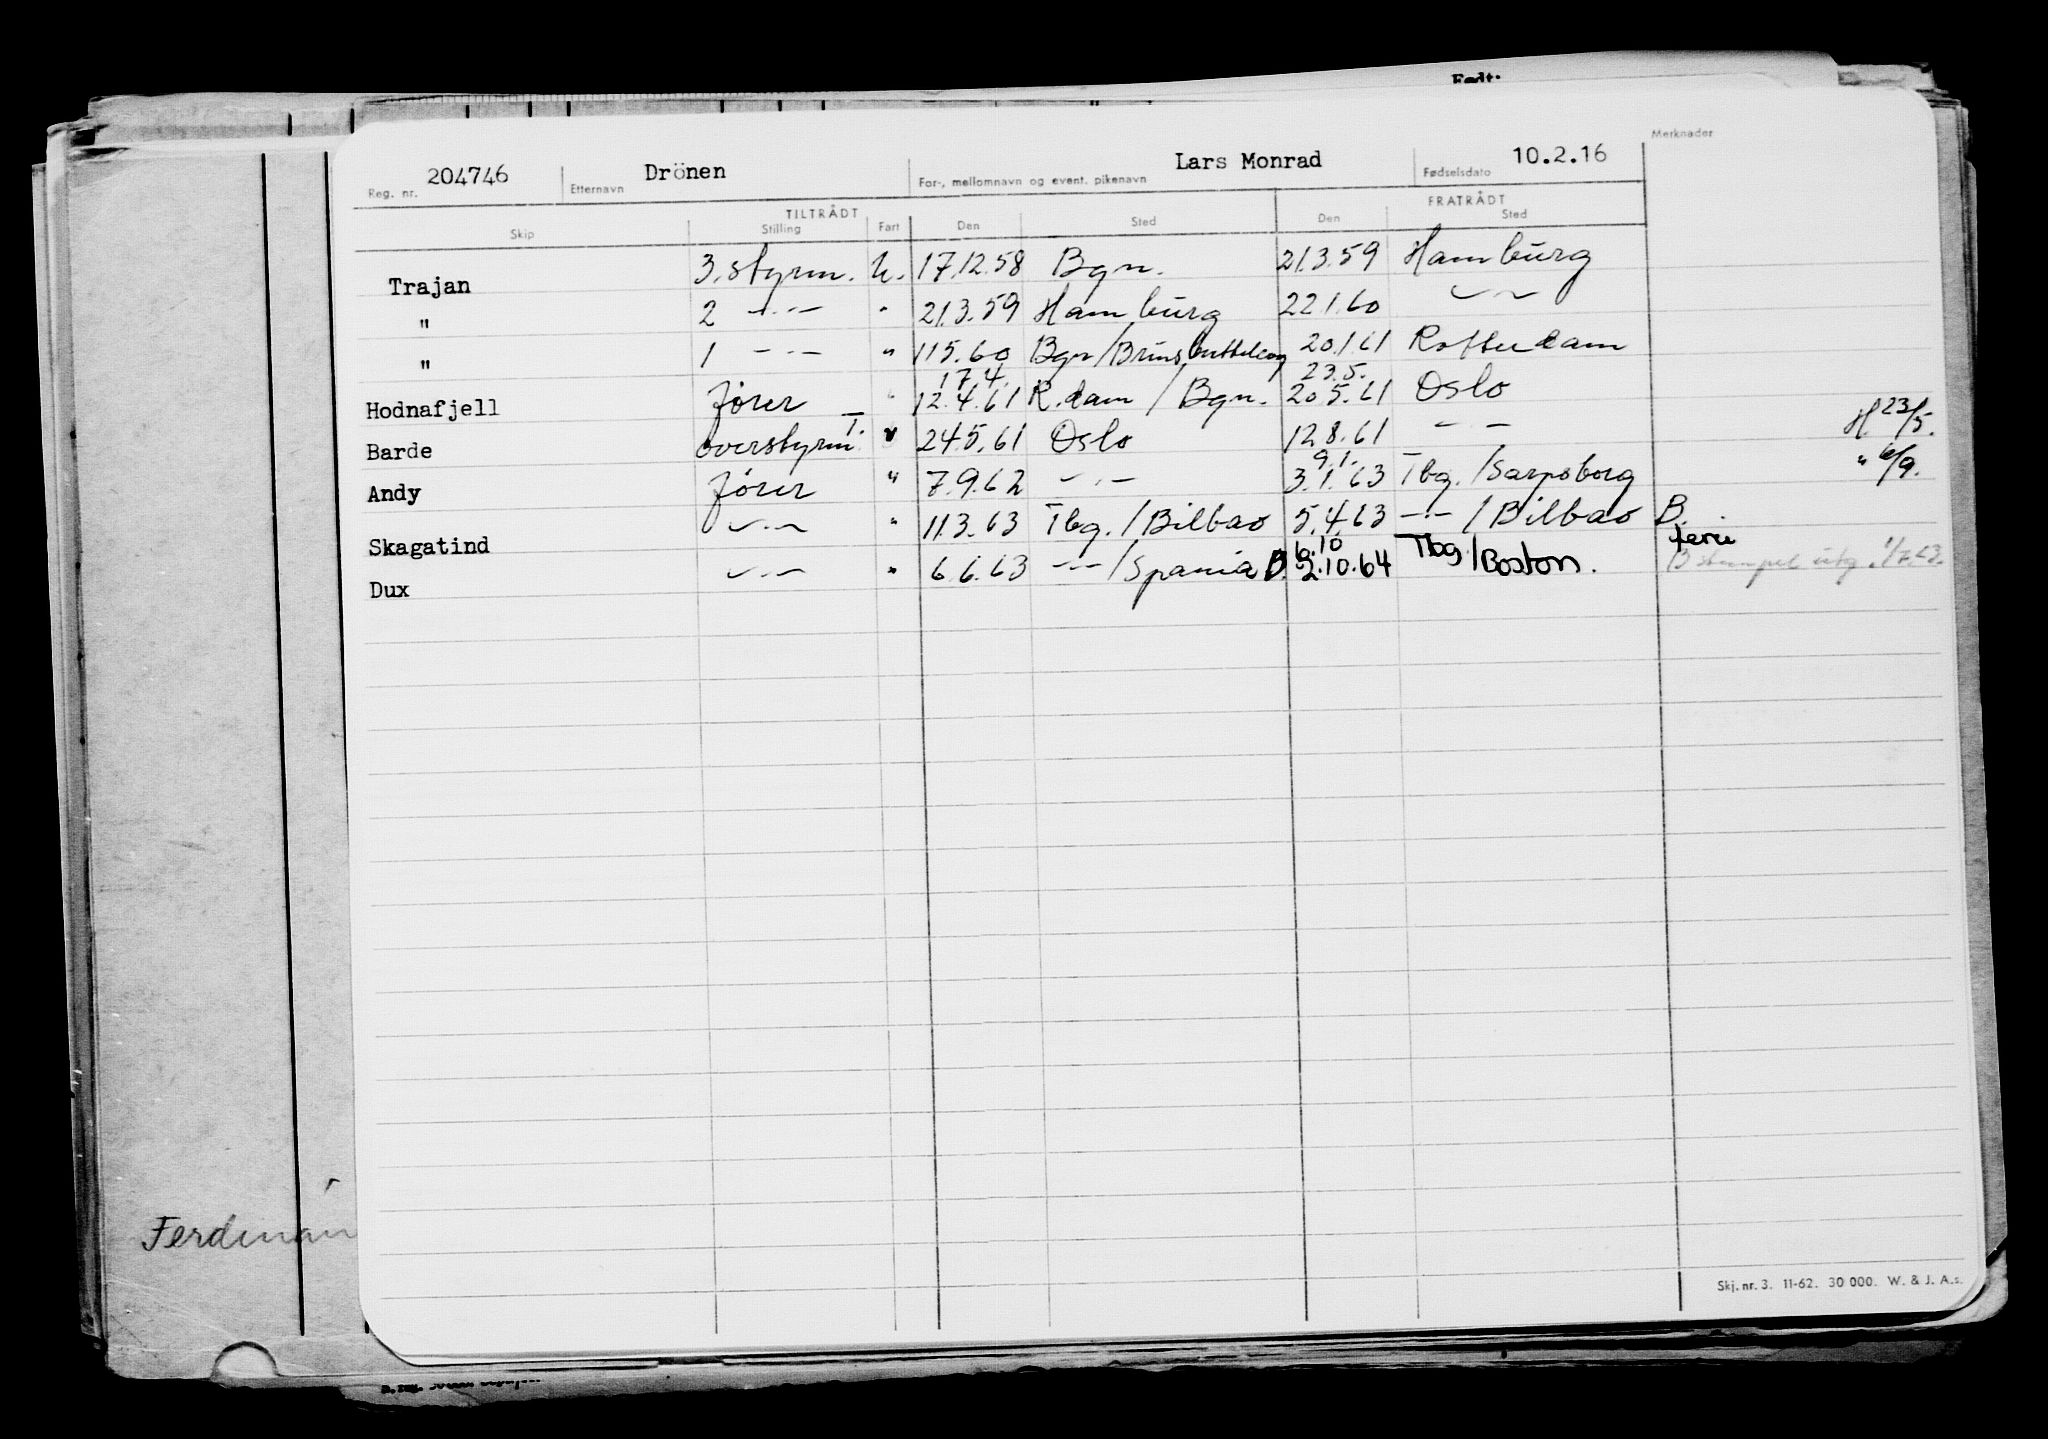 Født:
Merknader
Reg. nr. 204746 Etternavn Drönen For-, mellomnavn og event. pikenavn Lars Monrad Fødselsdato 10.2.16
TILTRÅDT FRATRÅDT
Skip Stilling Fart Den Sted Den Sted
Trajan 3. styrm. U. 17.12.58 Bgn. 21.3.59 Hamburg
" 2 -"- " 21.3.59 Hamburg 22.1.60 -"-
" 1 -"- " 11.5.60 Bgn/Brunsbuttelcog 20.1.61 Rotterdam
17.4. 23.5.
Hodnafjell fører " 12.4.61 R.dam / Bgn. 20.5.61 Oslo
Barde overstyrm. T. " 24.5.61 Oslo 12.8.61 -"- H. 23/5.
9.1.
Andy fører " 7.9.62 -"- 3.1.63 Tbg./Sarpsborg " 6/9.
Skagatind -"- " 11.3.63 Tbg./Bilbao 5.4.63 -"- /Bilbao B.
6.10 ferie
Dux -"- " 6.6.63 -"- /Spania B. 2.10.64 Tbg./Boston. B stempel utg. 1/7.63.
Ferdinan
Skj. nr. 3. 11-62. 30 000. W. & J. A.s.